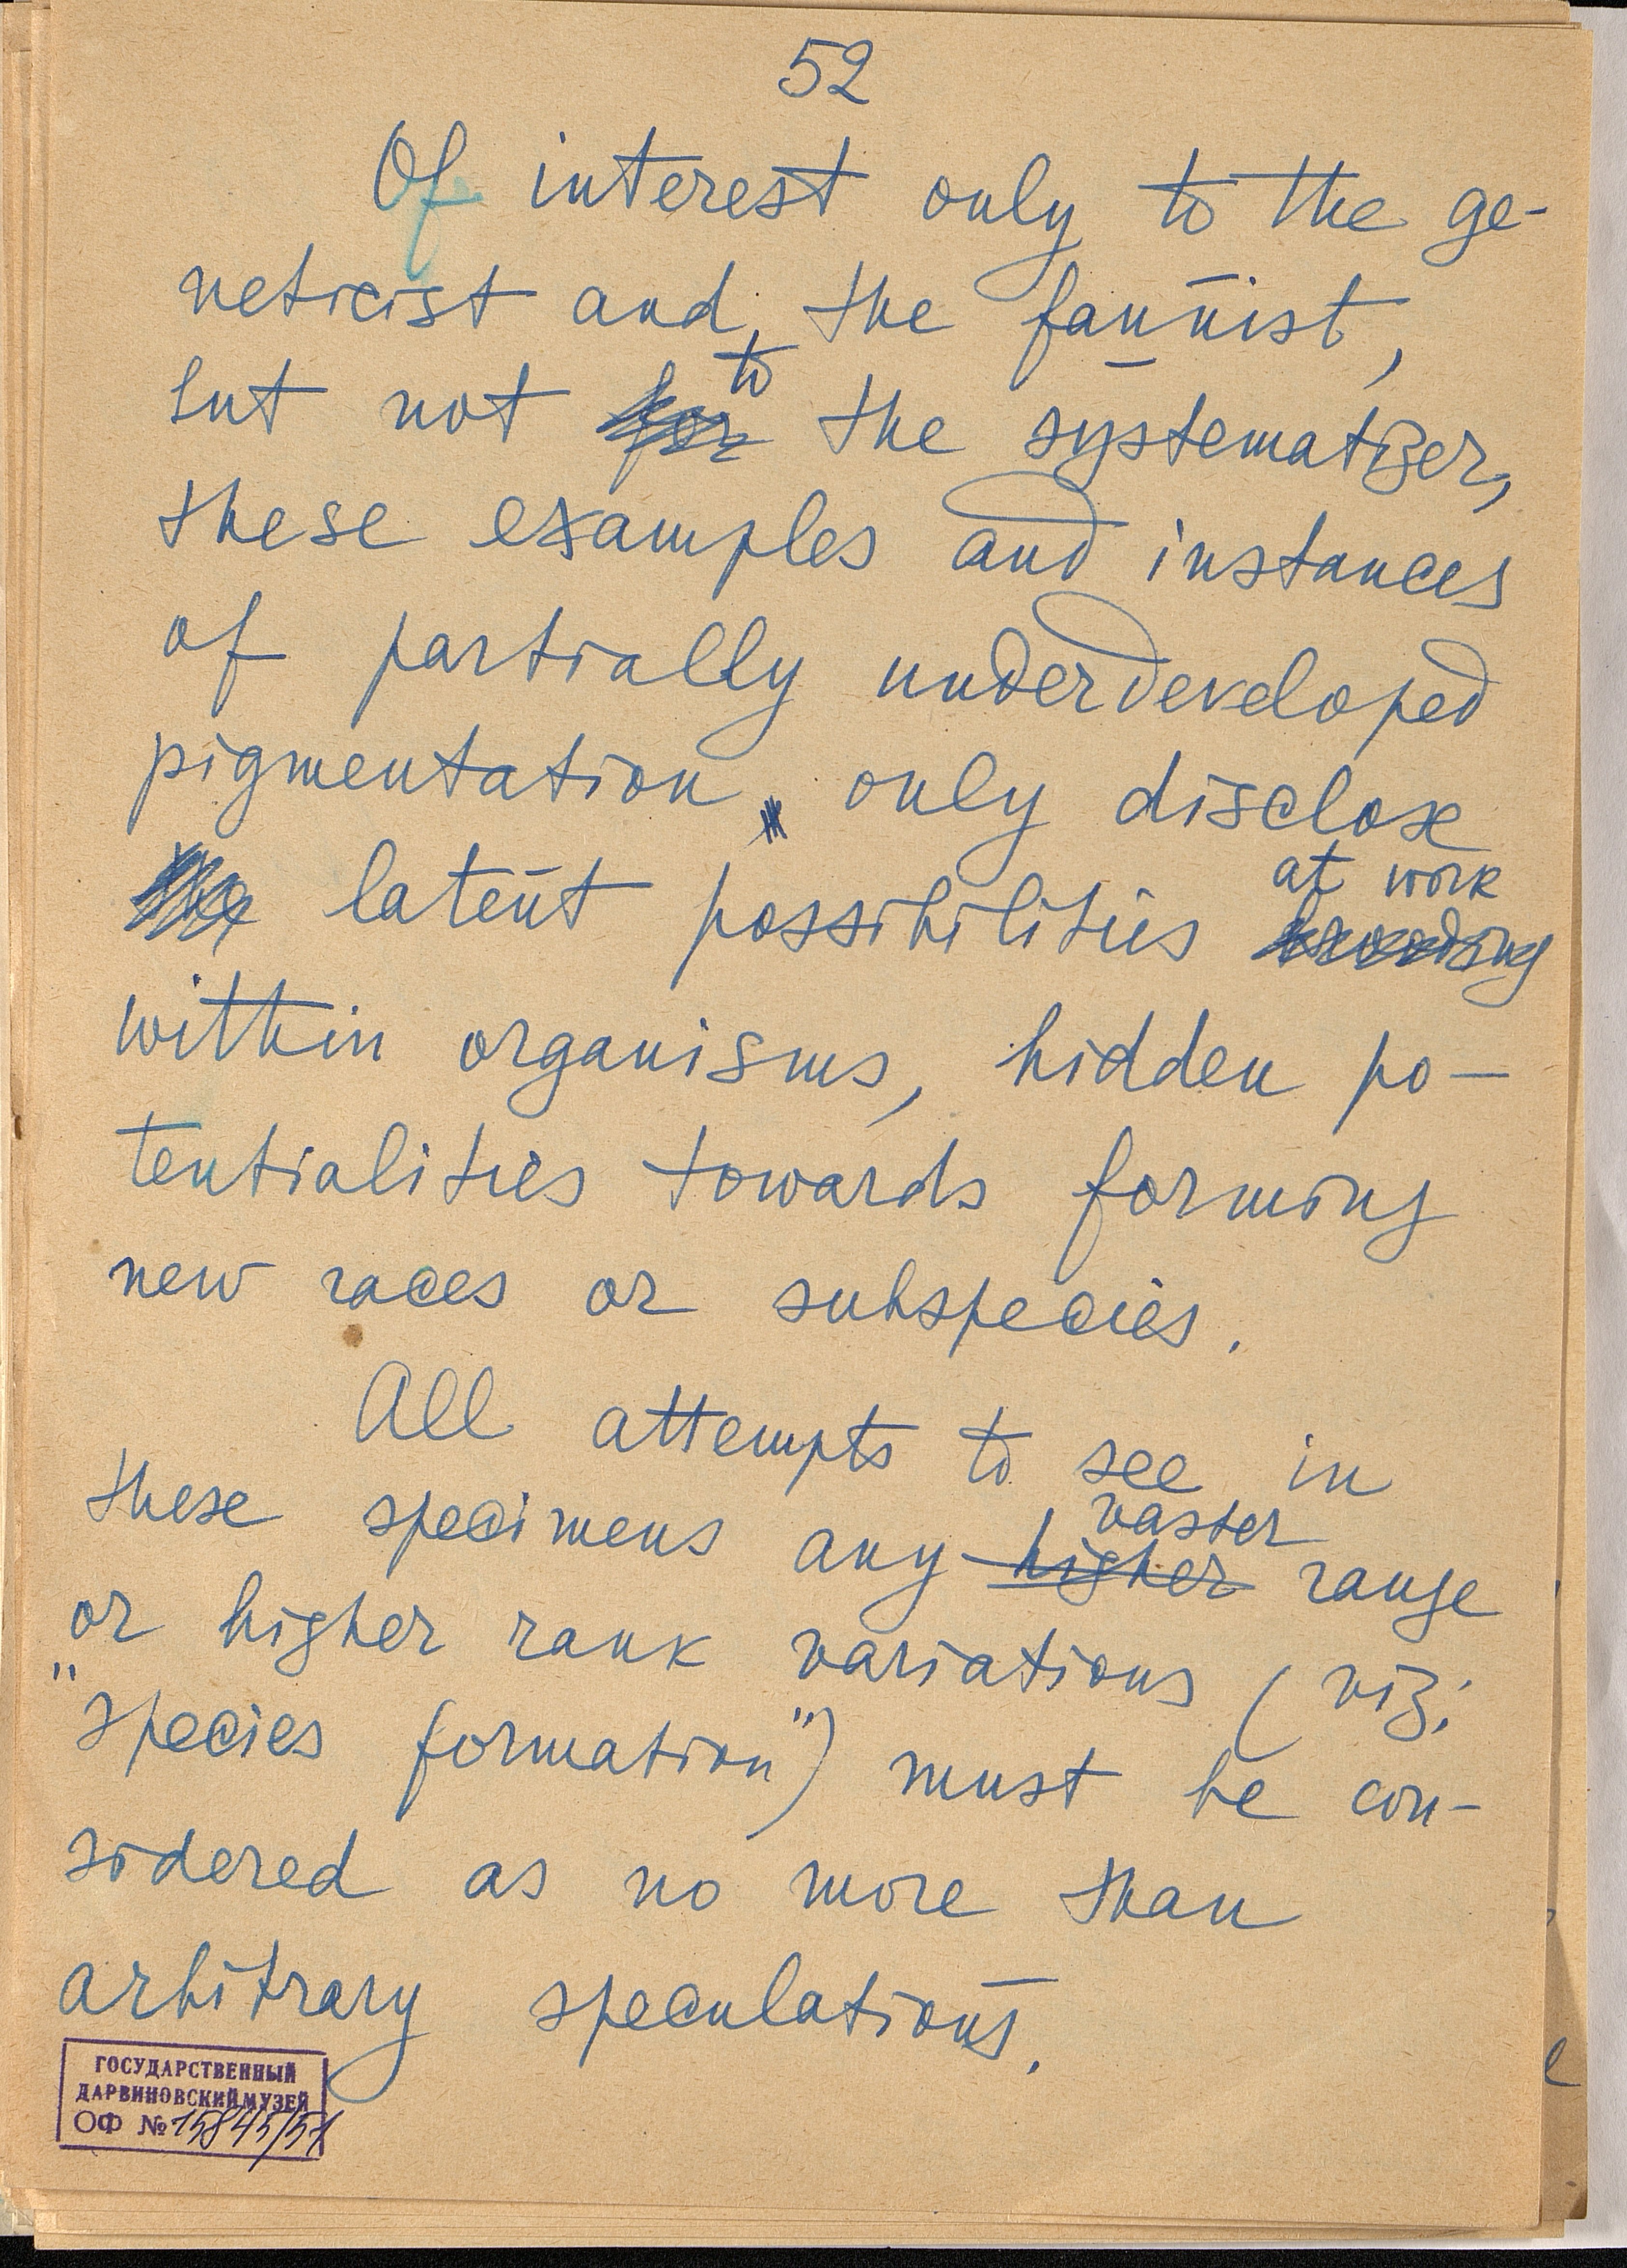 52
Of interest only to the ge-
neticist and, the faunist,
but not for to the systematizer,
these examples and instances
of partially underdeveloped
pigmentation only disclose
the latent possibilities at work
within organisms, hidden po-
tentialities towards forming
new races or subspecies.
All attempts to see in
these specimens any higher vaster range
or higher rank variations (viz:
"species formation") must be con-
sidered as no more than
arbitrary speculations.
ГОСУДАРСТВЕННЫЙ
ДАРВИНОВСКИЙ МУЗЕЙ
ОФ № 15845/51